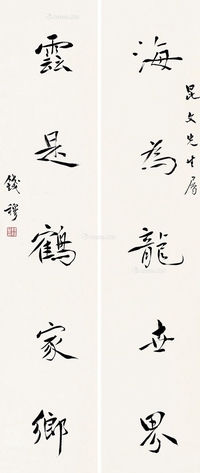 昆文先生属
海為龍世界
雲是鶴家鄉
錢穆